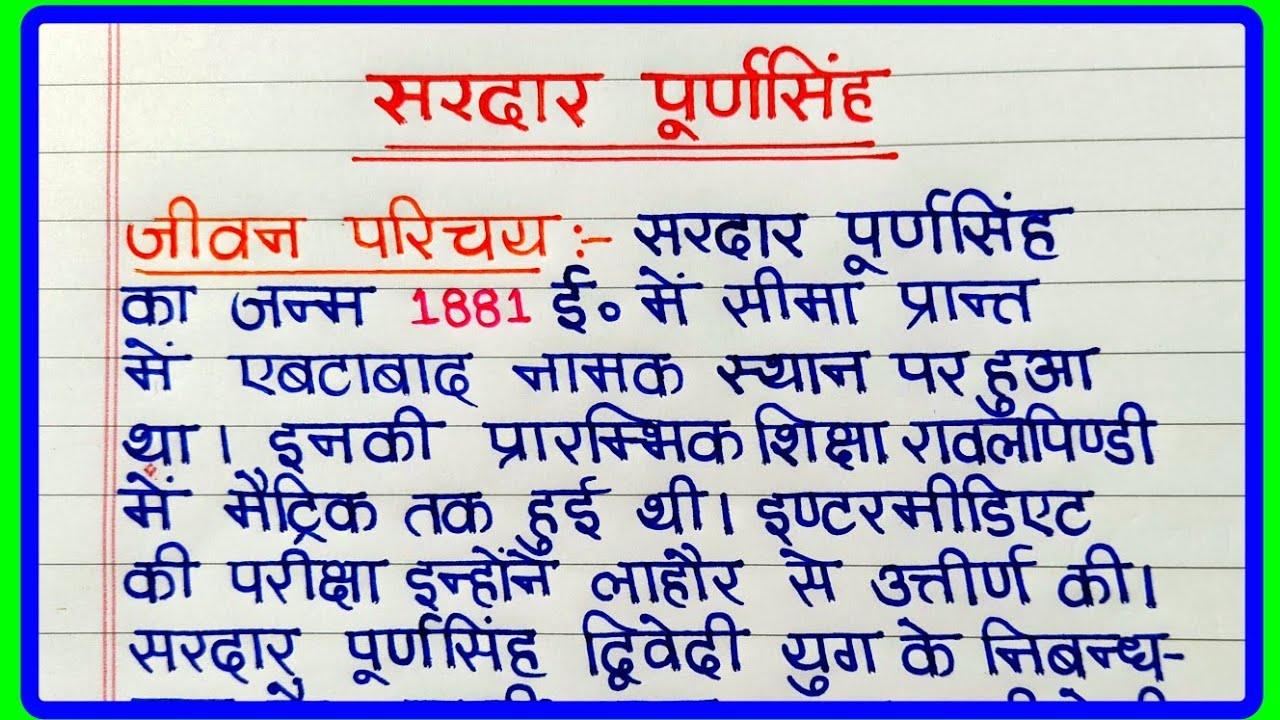 सरदार पूर्णसिंह
जीवन परिचय :- सरदार पूर्णसिंह
का जन्म 1881 ई० में सीमा प्रान्त
में एबटाबाद नामक स्थान पर हुआ
था। इनकी प्रारम्भिक शिक्षा रावलपिण्डी
में मैट्रिक तक हुई थी। इण्टरमीडिएट
की परीक्षा इन्होंने लाहौर से उत्तीर्ण की।
सरदार पूर्णसिंह द्विवेदी युग के निबन्ध-